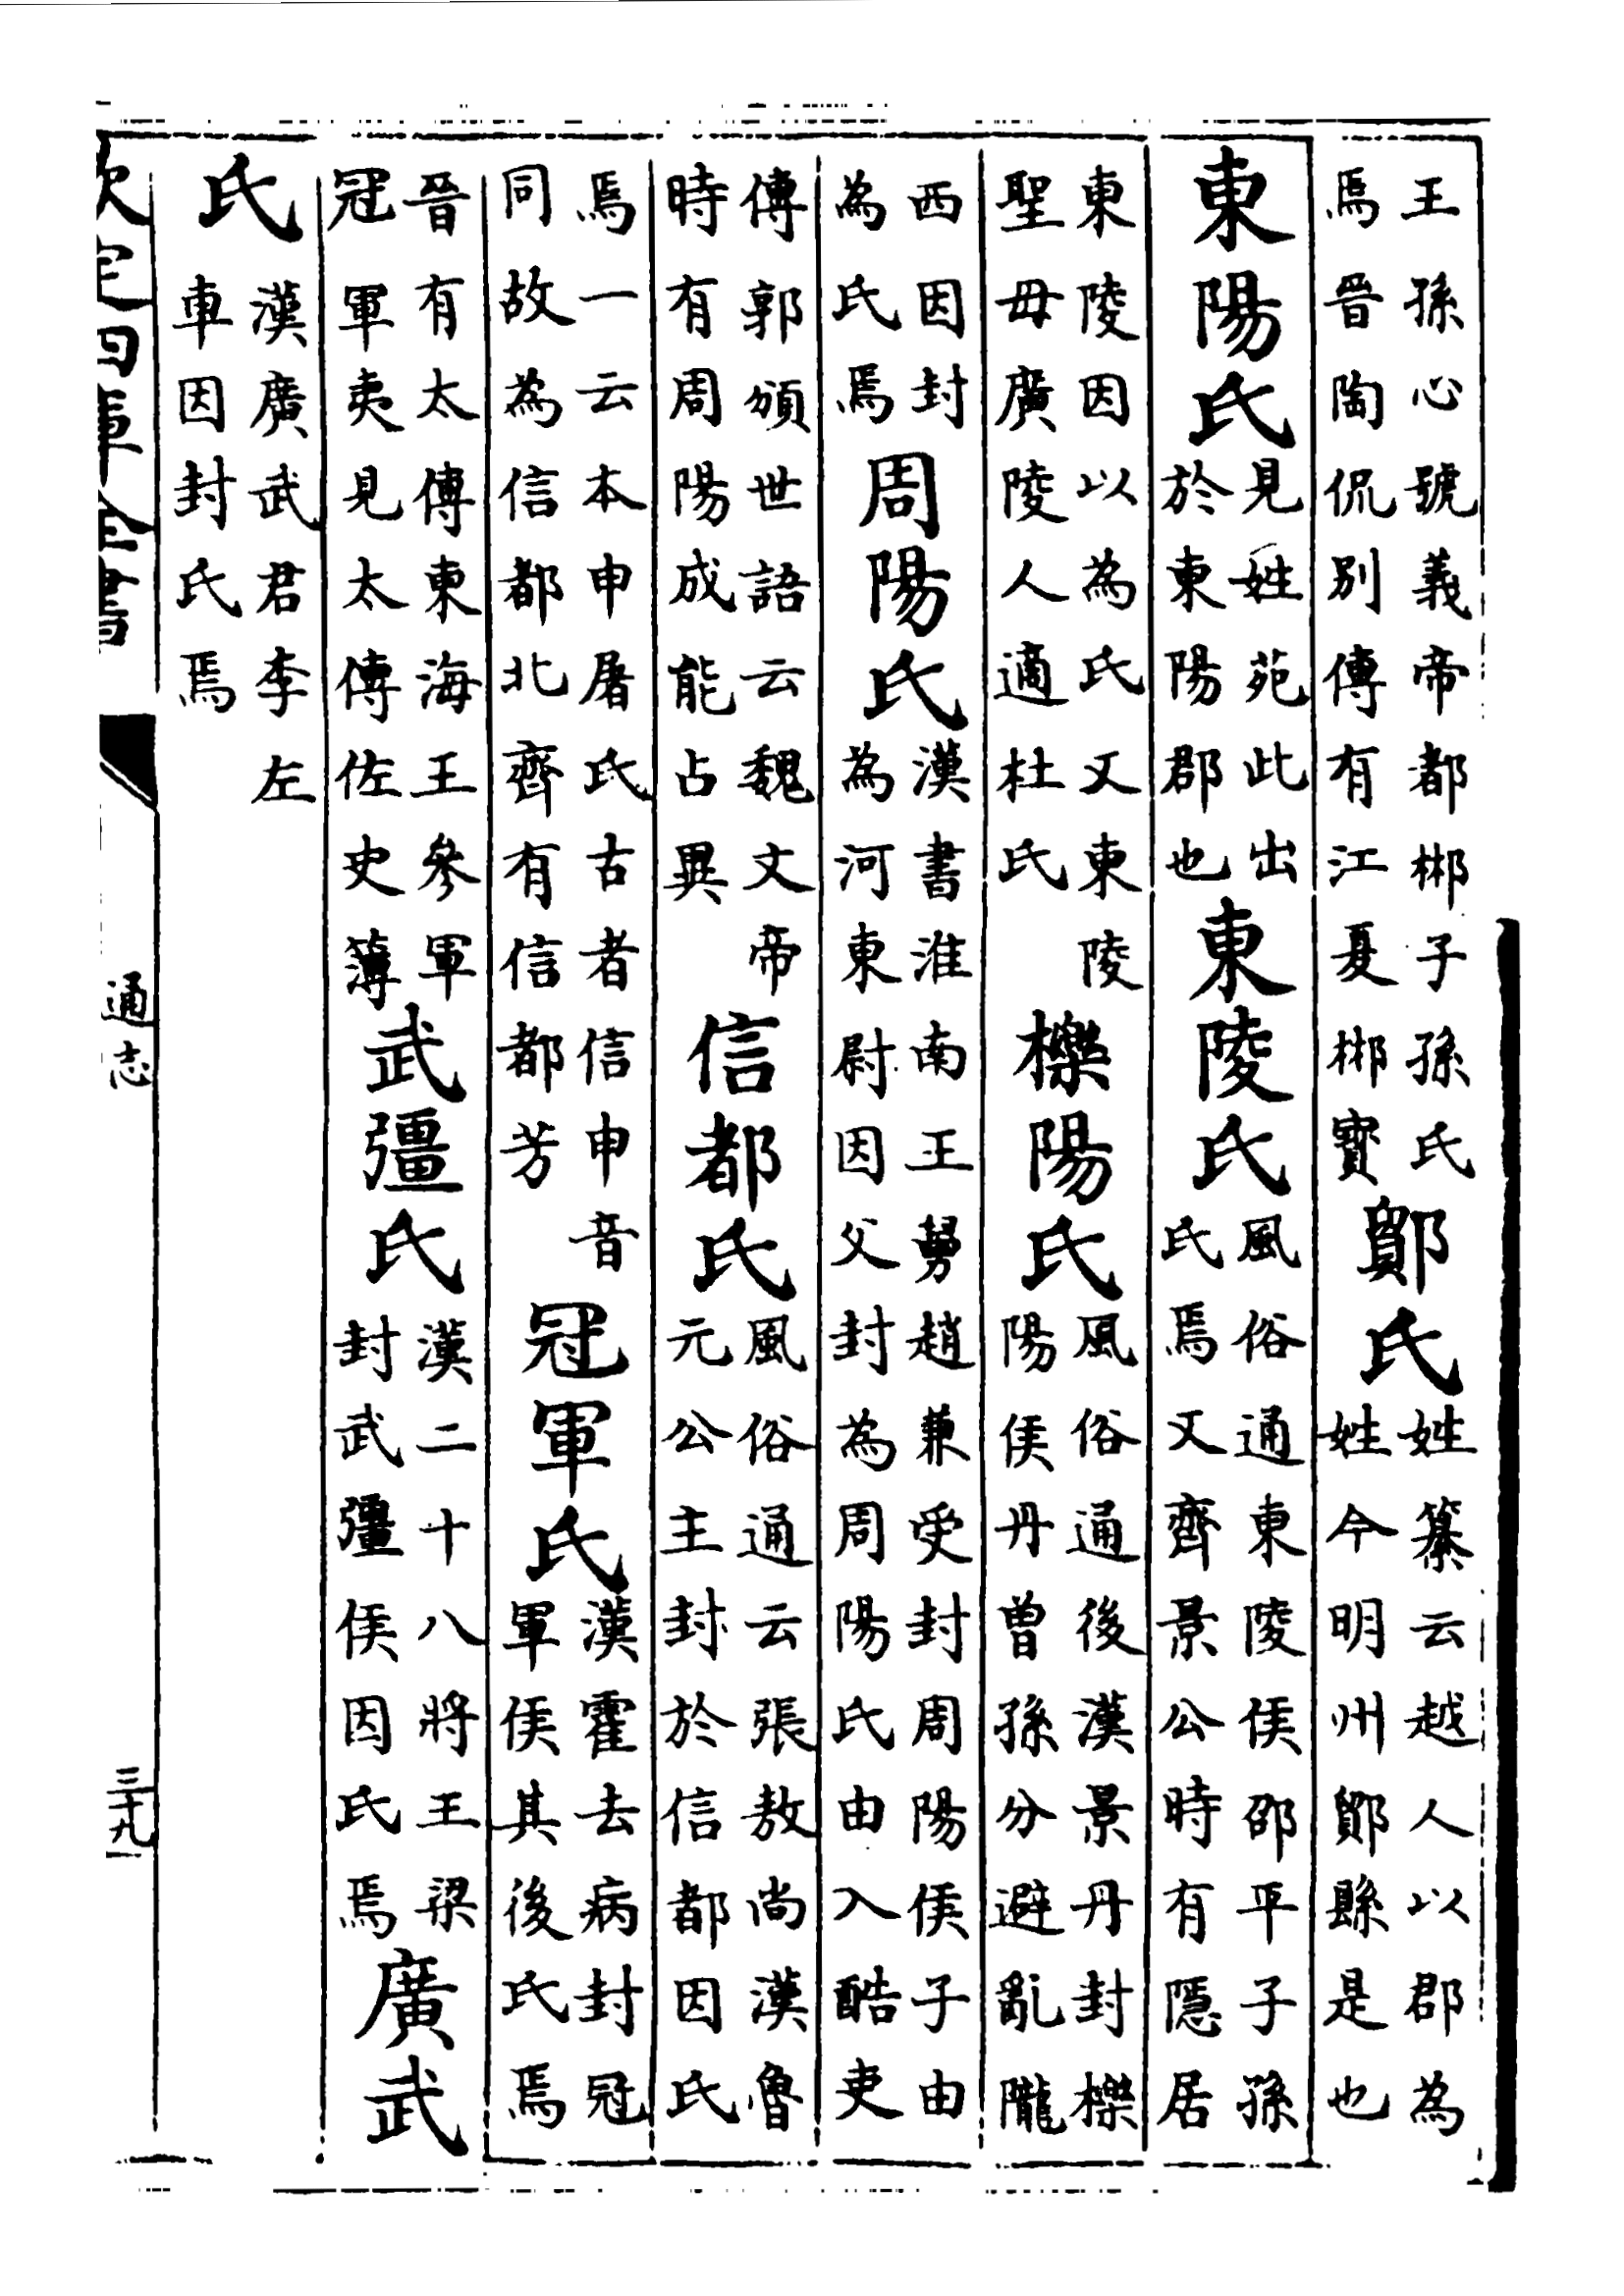 王孫心號義帝都郴子孫氏
焉晉陶侃別傳有江夏郴寶
鄮氏
姓纂云越人以郡為
姓今明州鄮縣是也
東陽氏
見姓苑此出
於東陽郡也
東陵氏
風俗通東陵侯邵平子孫
氏焉又齊景公時有隱居
東陵因以為氏又東陵
聖母廣陵人適杜氏
櫟陽氏
風俗通後漢景丹封櫟
陽侯丹曾孫分避亂隴
西因封
為氏焉
周陽氏
漢書淮南王舅趙兼受封周陽侯子由
為河東尉因父封為周陽氏由入酷吏
傳郭頒世語云魏文帝
時有周陽成能占異
信都氏
風俗通云張敖尚漢魯
元公主封於信都因氏
焉一云本申屠氏古者信申音
同故為信都北齊有信都芳
冠軍氏
漢霍去病封冠
軍侯其後氏焉
晉有太傅東海王參軍
冠軍夷見太傅佐史簿
武彊氏
漢二十八將王梁
封武彊侯因氏焉
廣武
氏
漢廣武君李左
車因封氏焉
欽定四庫全書
通志
三十九